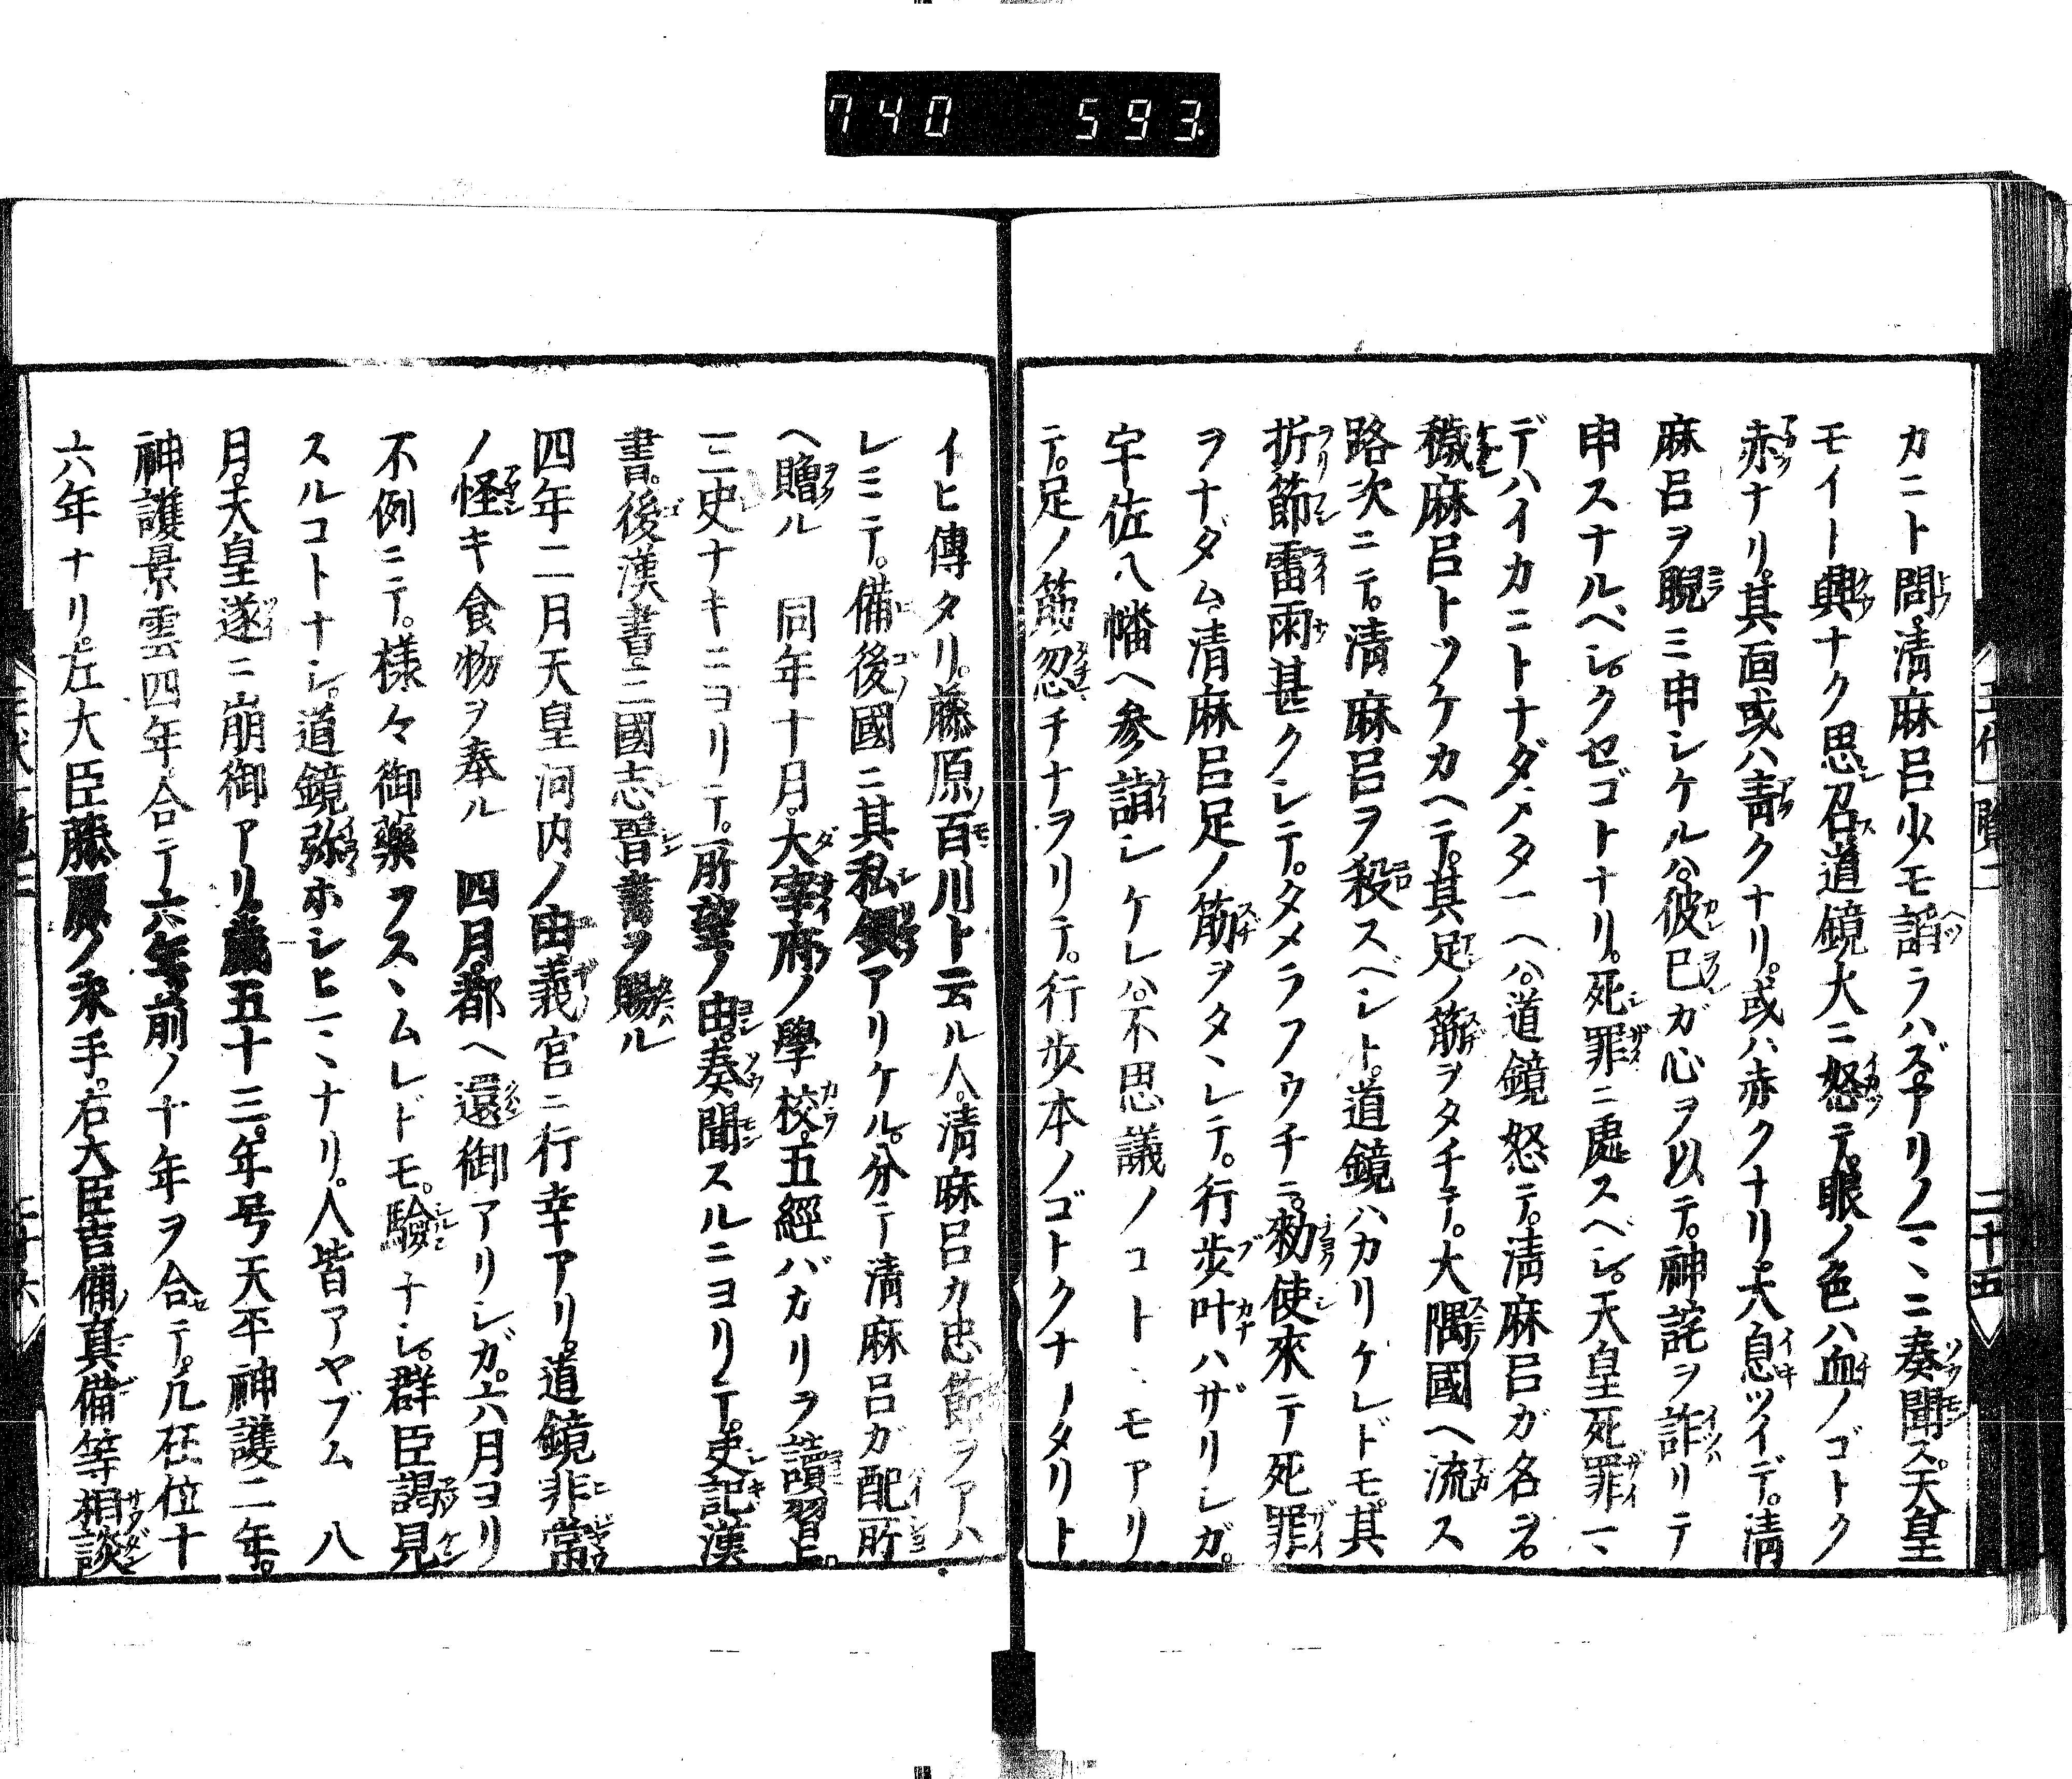 740 593
カニト問。清麻呂少モ諂ラハズ。アリノマヽニ奏聞ス。天皇
モイト興ナク思召。道鏡大ニ怒テ。眼ノ色ハ血ノゴトク
赤ナリ。其面或ハ青クナリ。或ハ赤クナリ。大息ツイデ。清
麻呂ヲ睨ミ申シケルハ。彼已ガ心ヲ以テ。神詫ヲ詐リテ
申スナルベシ。クセゴトナリ。死罪ニ處スベシ。天皇死罪マ
デハイカニトナダメタマヘハ。道鏡怒テ。清麻呂ガ名ヲ。
穢麻呂トツケカヘテ。其足ノ筋ヲタチテ。大隅國ヘ流ス
路次ニテ。清麻呂ヲ殺スベシト。道鏡ハカリケレドモ。其
折節雷雨甚クシテ。タメラフウチニ。勅使來テ死罪
ヲナダム。清麻呂足ノ筋ヲタヽレテ。行歩叶ハザリシガ。
宇佐八幡ヘ参詣シケレハ。不思議ノコトヽモアリ
テ。足ノ筋忽チナヲリテ。行歩本ノゴトクナリタリト
イヒ傳タリ。藤原百川ト云ル人。清麻呂カ忠節ヲアハ
レミテ。備後國ニ其私領アリケル。分テ清麻呂ガ配所
ヘ贈ル 同年十月。大宰府ノ學校。五經バカリヲ讀習ヒ。
三史ナキニヨリテ。所望ノ由。奏聞スルニヨリテ。史記漢
書。後漢書三國志晉書ヲ賜ル
四年二月天皇河内ノ由義宮ニ行幸アリ。道鏡非常
ノ怪キ食物ヲ奉ル 四月。都ヘ還御アリシガ。六月ヨリ
不例ニテ。様々御藥ヲスヽムレドモ。驗ナシ。群臣謁見
スルコトナシ。道鏡弥ホシヒマヽナリ。人皆アヤブム 八
月。天皇遂ニ崩御アリ。歳五十三。年号天平神護二年。
神護景雲四年合テ六年。前ノ十年ヲ合テ。凡在位十
六年ナリ。左大臣藤原ノ永手。右大臣吉備真備等相談